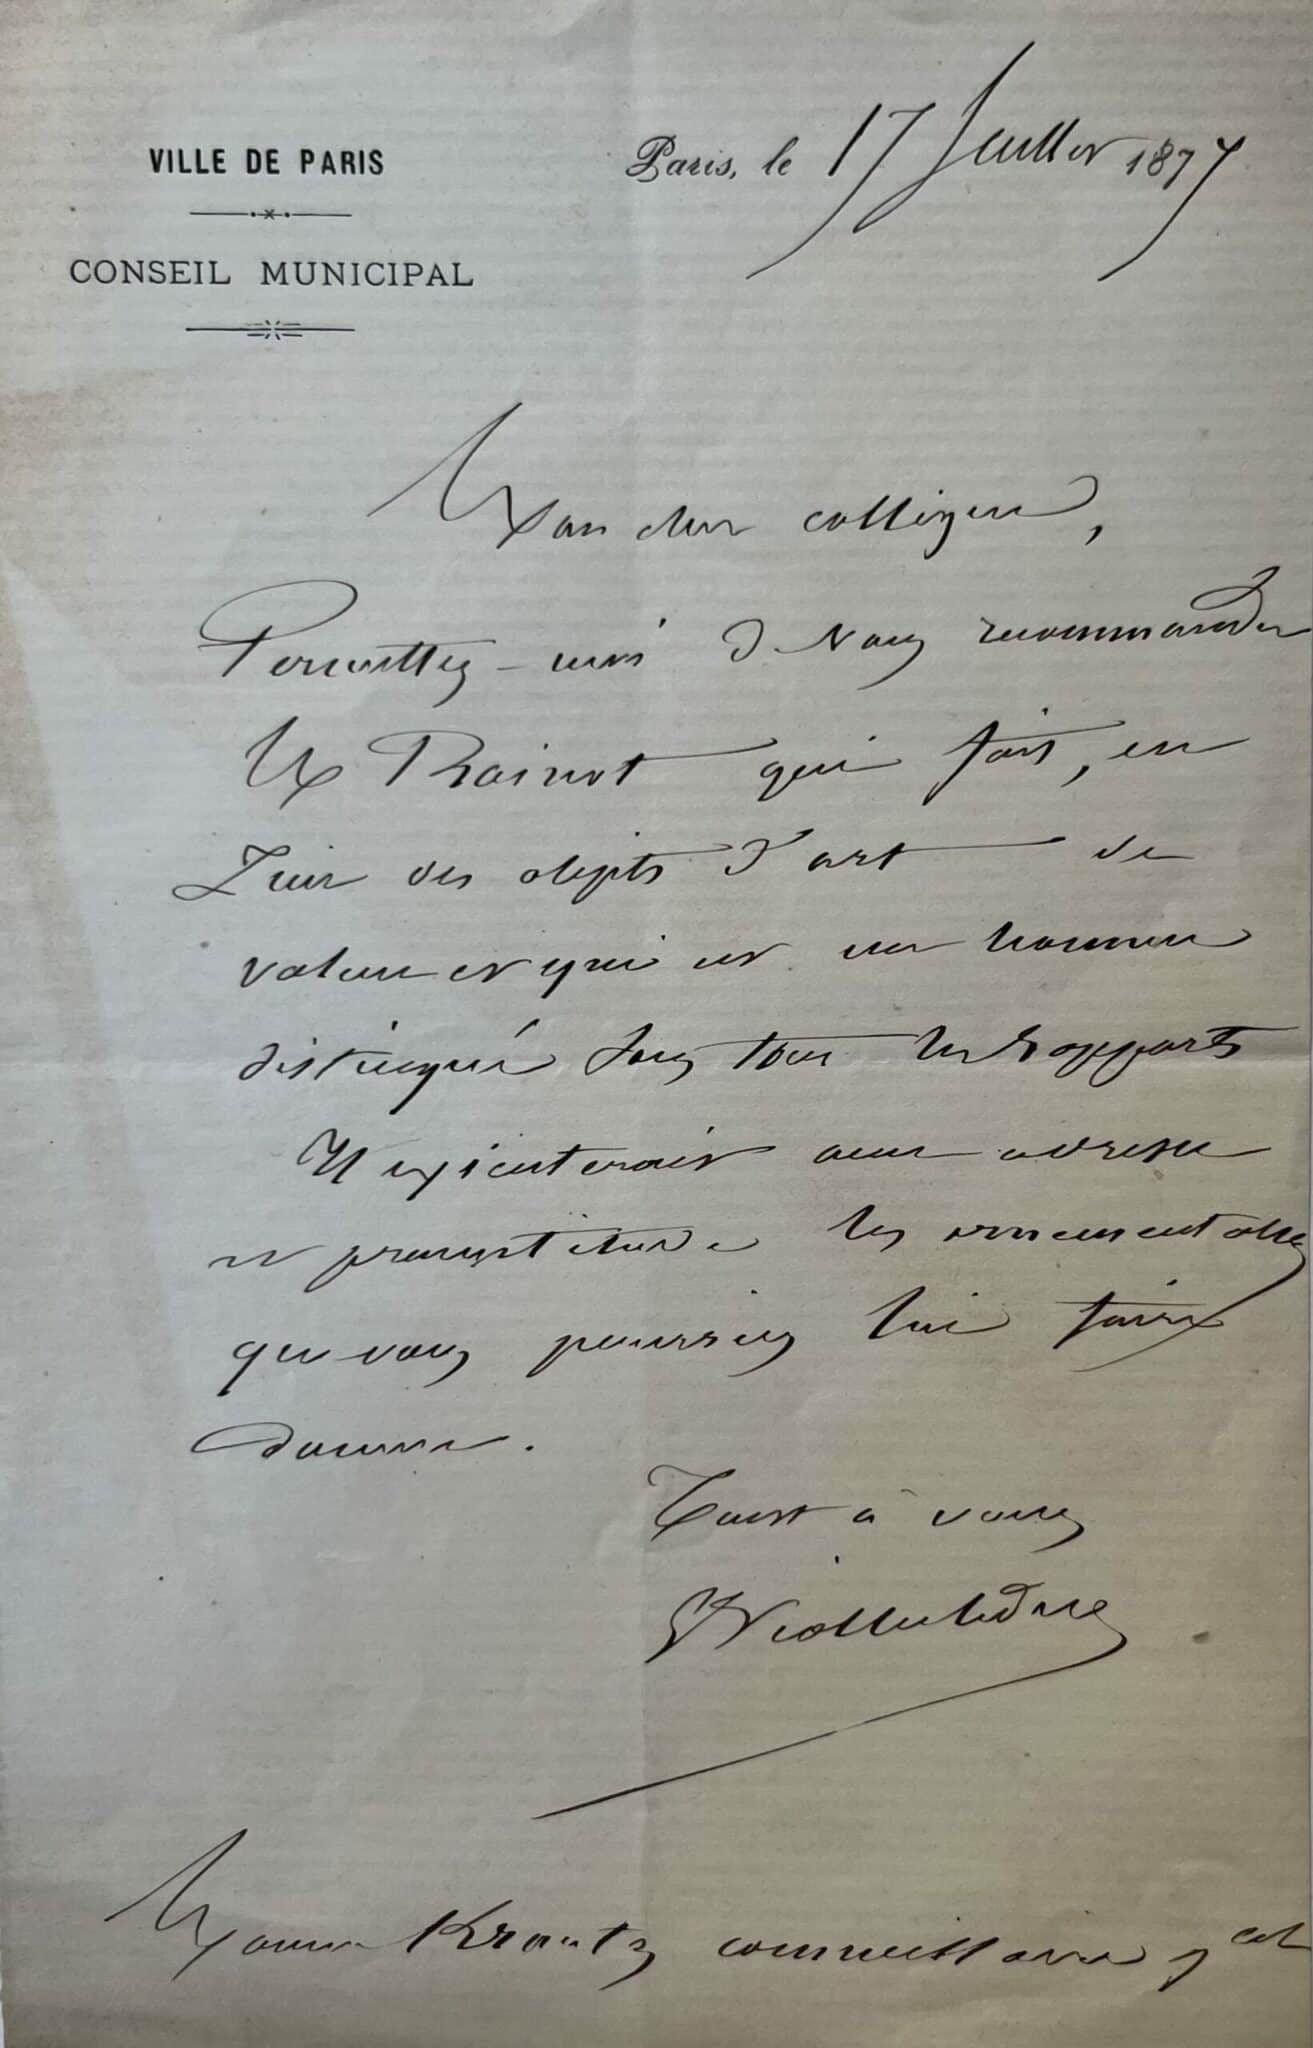 VILLE DE PARIS
CONSEIL MUNICIPAL
Paris, le 17 Juillet 1877
Mon cher collègue,
Permettez-moi de vous recommander
M Rainot qui fait, en
cuir des objets d'art de
valeur et qui est un homme
distingué sous tous les rapports
Il exécuterait avec adresse
et promptitude les
que vous pourriez lui faire
donner.
Tout à vous
EViolletleDuc
Monsieur Krantz commissaire gal